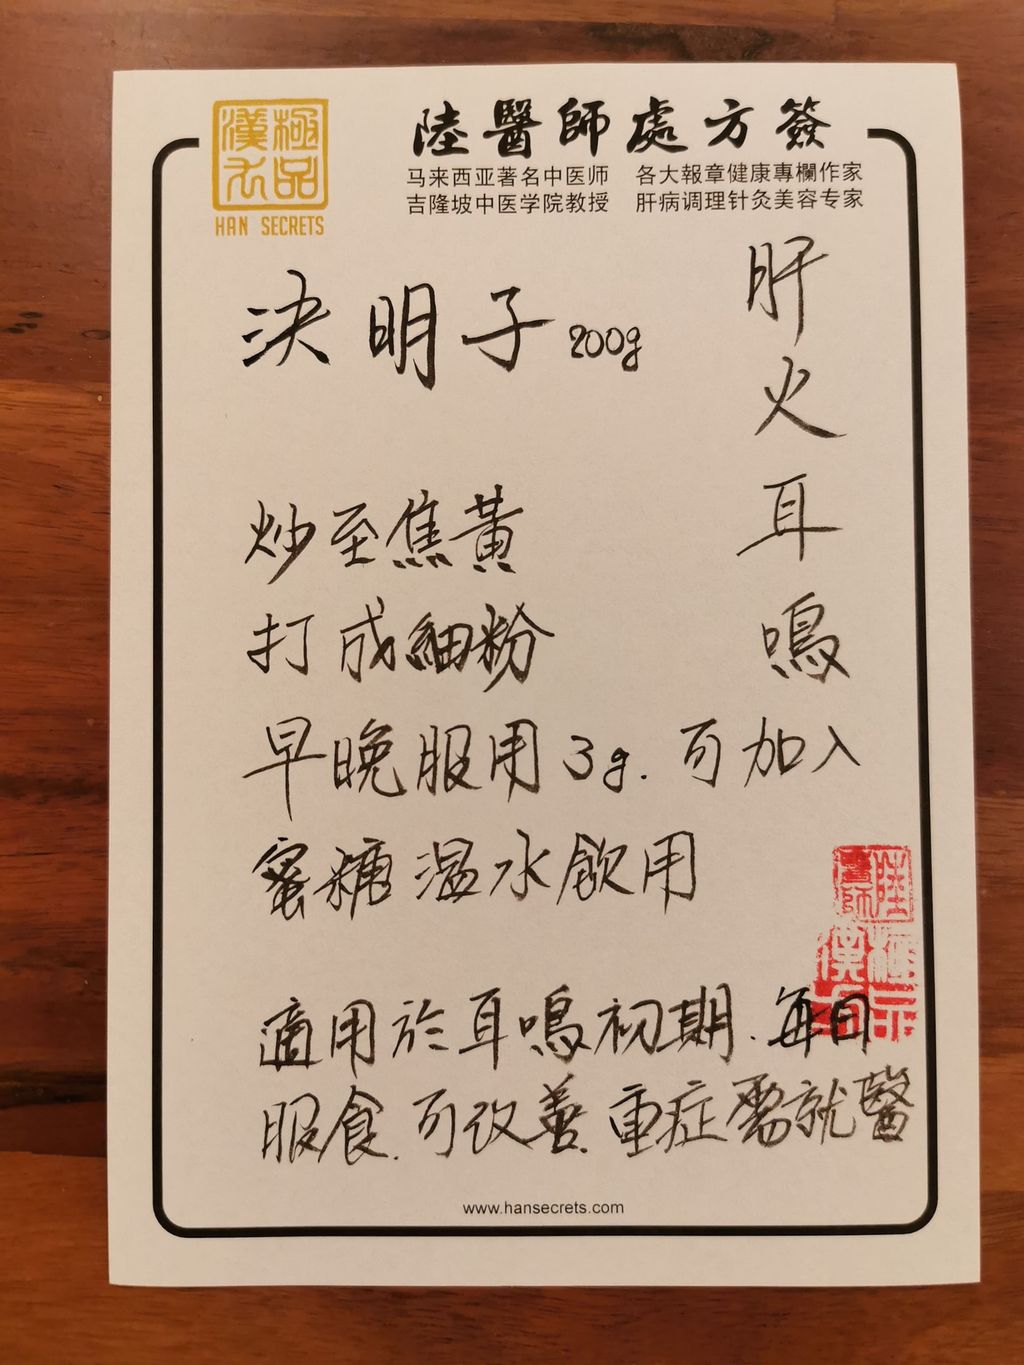 極品
漢方
HAN SECRETS
陸醫師處方簽
马来西亚著名中医师 各大報章健康專欄作家
吉隆坡中医学院教授 肝病调理针灸美容专家
肝火耳鳴
決明子 200g
炒至焦黃
打成細粉
早晚服用3g.可加入
蜜糖溫水飲用
適用於耳鳴初期.每日
服食.可改善.重症需就醫
陸醫師
www.hansecrets.com